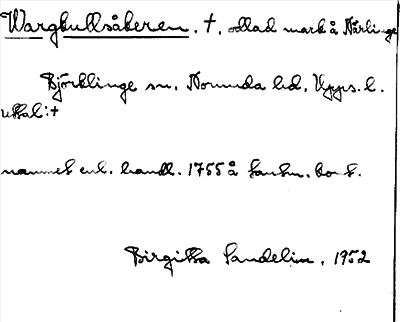 Wargkullsåkeren. †. odlad mark å Närlinge
Björklinge sn. Norunda hd. Upps. l.
uttal: †
namnet enl. handl. 1755 å lantm. kont.
Birgitta Sandelin. 1952